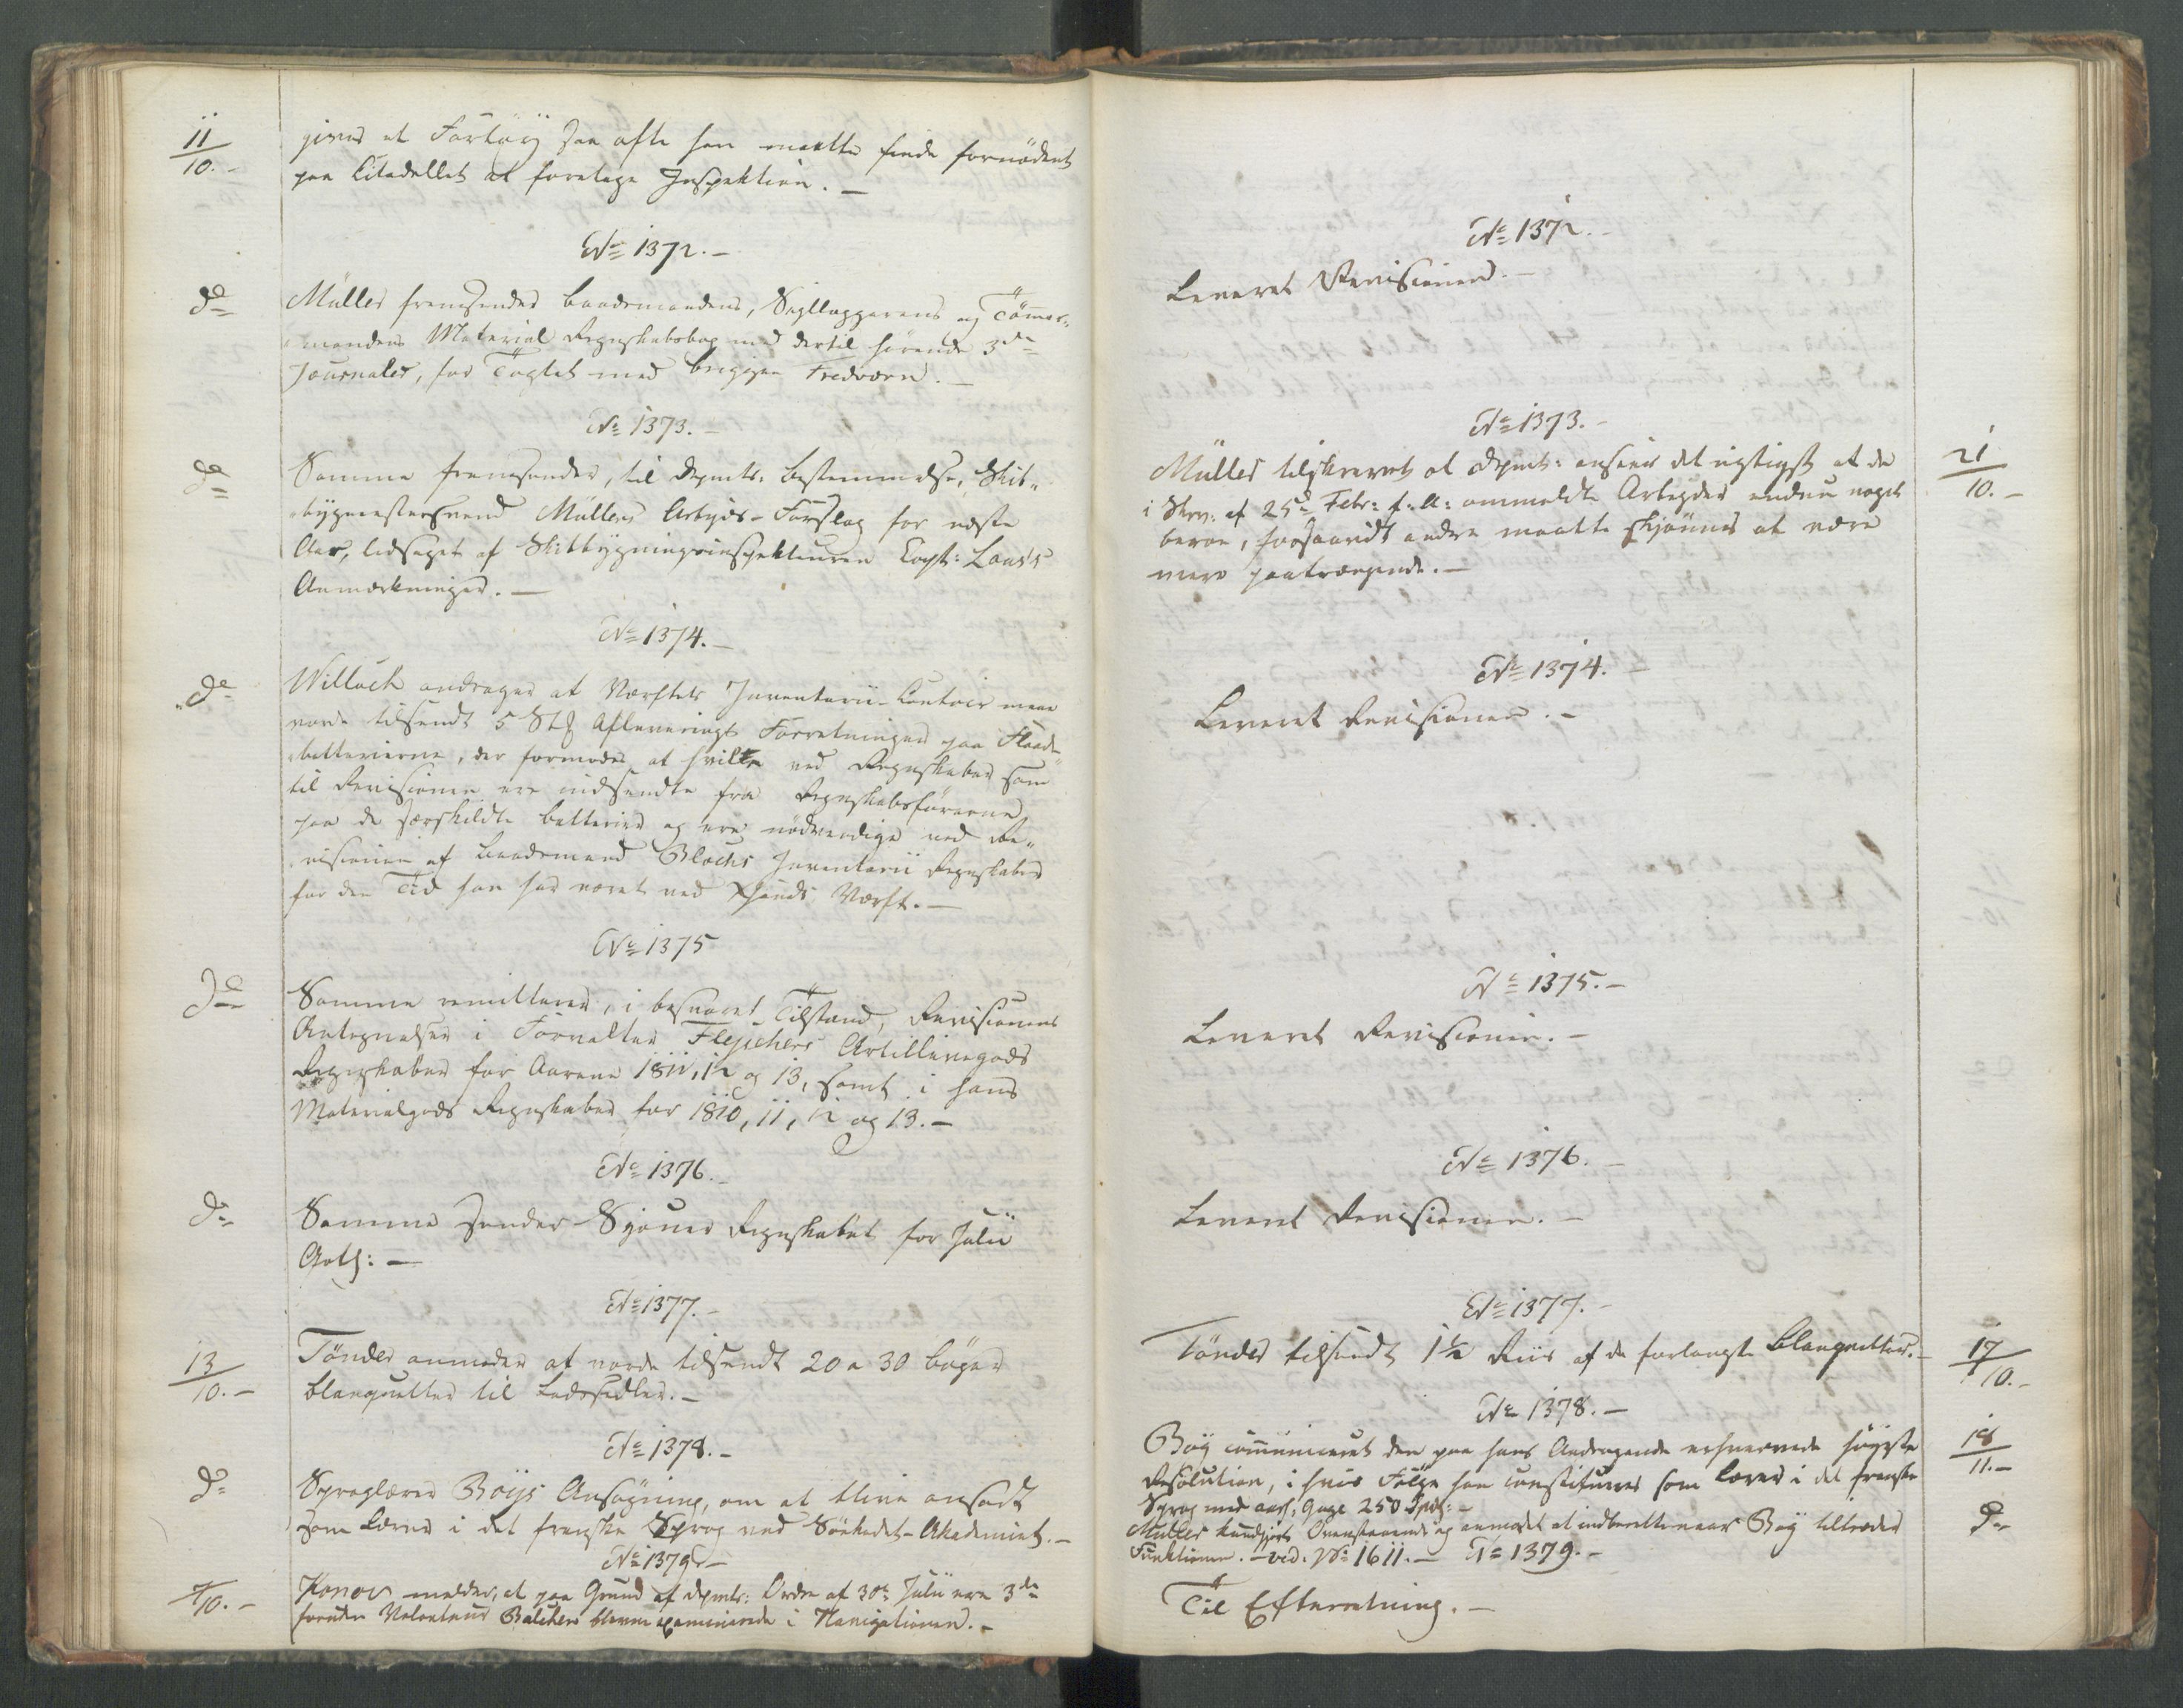 11/10.-
gives et Fartöy saa ofte han maatte finde fornödent
paa Citadellet at foretage Inspektion. -
No 1372. -
do
Müller fremsender Baadsmandens, Sejlleggerens og Tömmer„
„mandens Material Regnskabsbog med dertil hörende 3de
Journaler, for Togtet med Briggen Fredværn. -
No 1373. -
do
Samme fremsender, til Depmts: Bestemmelse, Skib„
„bygmester Müllers Arbejds-Forslag for næste
Aar, ledsaget af Skibbygningsinspekteuren Capt: Lous's
Anmærkninger. -
No 1374. -
do
Willoch andrager at Værftets Inventarii-Contoir maae
vorde tilsendt 5 Stk Afleverings Forretninger paa Flaad„
„batterierne, der formodes at hvile ved Regnskaber som
til Revisionen ere indsendte fra Regnskabsförerne
paa de særskildte Batterier og ere nödvendige ved Re„
„visionen af Baadsmand Blochs Inventarii Regnskaber
for den Tid han har været ved Xsands Værft. -
No 1375
do
Samme remitterer, i besvaret Tilstand, Revisionens
Antegnelser i Forvalter Flejschers Artillerigods
Regnskaber for Aarene 1811, 12 og 13, samt i hans
Materialgods Regnskaber for 1810, 11, 12 og 13. -
No 1376. -
do
Samme sender Sjouer Regnskabet for Julii
Qvtl: -
No 1377. -
13/10.-
Tönder anmoder at vorde tilsendt 20 a 30 Böger
Blanquetter til Ledsedler. -
No 1378. -
do
Sproglærer Böijs Ansögning, om at blive ansadt
som Lærer i det franske Sprog ved Söekadet-Akademiet. -
No 1379. -
/10.-
Konow melder, at paa Grund af Depmts: Ordre af 30te Julii ere 3de
foruden Volonteur Balchen bleven examinerede i Navigationen. -
No 1372. -
Leveret Revisionen. -
No 1373. -
Müller tilskrevet at Depmt: anseer det rigtigst at de
i Skrv: af 25de Febr: f: A: ommeldte Arbejder endnu noget
beroe, forsaavidt andre maatte skjönnes at være
mere paatrængende. -
21/10.-
No 1374. -
Leveret Revisionen. -
No 1375. -
Leveret Revisionen. -
No 1376. -
Leveret Revisionen. -
No 1377. -
Tönder tilsendt 1½ Riis af de forlangte Blanquetter. -
17/10.-
No 1378. -
Böij communiceret den paa hans Andragende erhvervede höyeste
Resolution, i hvis Fölge han constitueres som Lærer i det franske
Sprog med aarl: Gage 250 Spd: -
18/11.-
Müller kundgjort Ovenstaaende og anmodet at indberette naar Böy tiltræder
Funktionen. - vid: No 1611. - No 1379. -
do
Til Efterretning. -